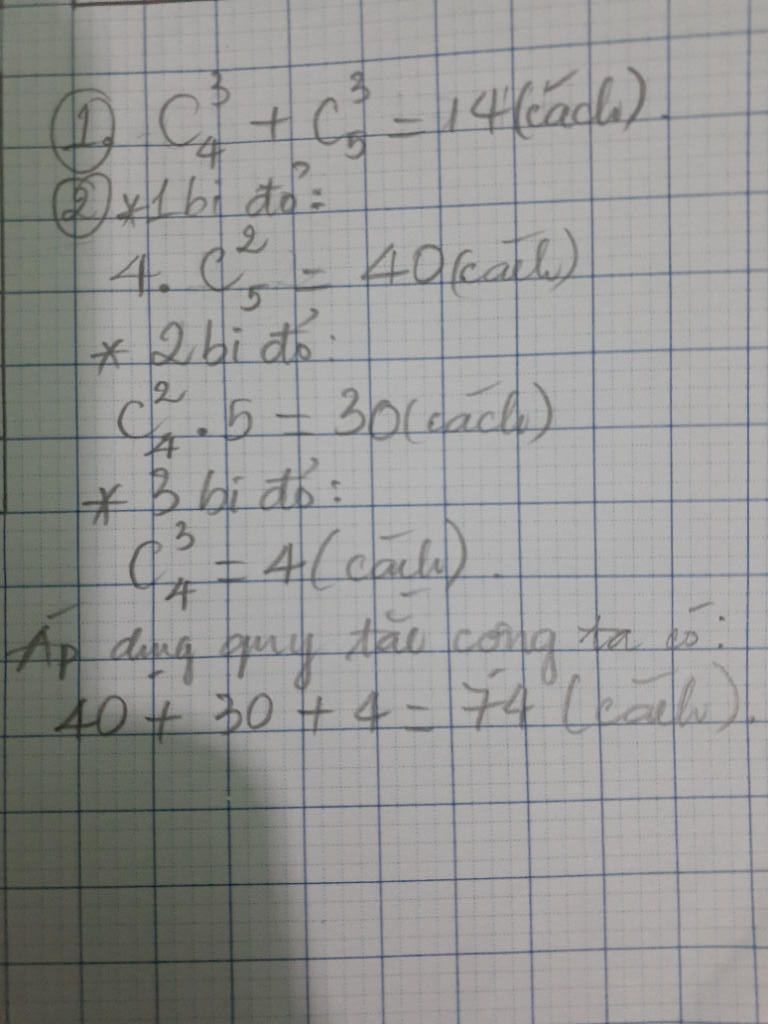 ① C₄³ + C₅³ = 14 (cách)
② * 1 bi đỏ:
4. C₅² = 40 (cách)
* 2 bi đỏ:
C₄² . 5 = 30 (cách)
* 3 bi đỏ:
C₄³ = 4 (cách).
Áp dụng quy tắc cộng ta có:
40 + 30 + 4 = 74 (cách).